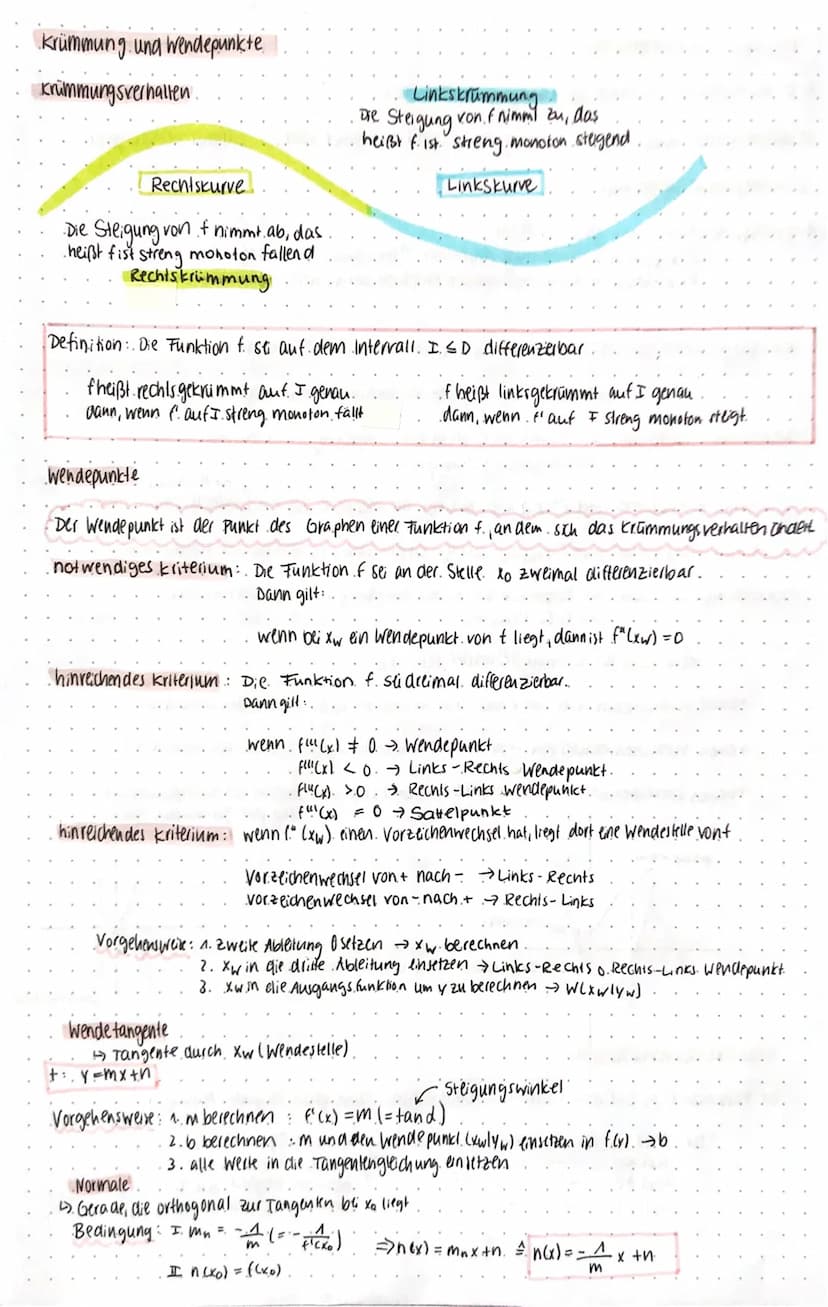 Krümmung und Wendepunkte
Krümmungsverhalten
Linkskrümmung
Die Steigung von f nimmt zu, das
heißt f ist streng monoton steigend
Rechtskurve
Linkskurve
Die Steigung von f nimmt ab, das
heißt f ist streng monoton fallend
Rechtskrümmung
Definition: Die Funktion f sei auf dem Intervall I ≤ D differenzierbar
f heißt rechtsgekrümmt auf I genau
dann, wenn f' auf I streng monoton fällt
f heißt linksgekrümmt auf I genau
dann, wenn f' auf I streng monoton steigt
Wendepunkte
Der Wendepunkt ist der Punkt des Graphen einer Funktion f, an dem sich das Krümmungsverhalten ändert
notwendiges Kriterium: Die Funktion f sei an der Stelle x₀ zweimal differenzierbar.
Dann gilt:
wenn bei xw ein Wendepunkt von f liegt, dann ist f"(xw) = 0
hinreichendes Kriterium: Die Funktion f sei dreimal differenzierbar.
Dann gilt:
wenn f'''(x) ≠ 0 → Wendepunkt
f'''(x) < 0 → Links-Rechts Wendepunkt
f'''(x) > 0 → Rechts-Links Wendepunkt
f'''(x) = 0 → Sattelpunkt
hinreichendes Kriterium: wenn f"(xw) einen Vorzeichenwechsel hat, liegt dort eine Wendestelle von f
Vorzeichenwechsel von + nach - → Links-Rechts
Vorzeichenwechsel von - nach + → Rechts-Links
Vorgehensweise: 1. zweite Ableitung 0 setzen → xw berechnen
2. xw in die dritte Ableitung einsetzen → Links-Rechts o. Rechts-Links Wendepunkt
3. xw in die Ausgangsfunktion um y zu berechnen → W(xw|yw)
Wendetangente
↳ Tangente durch xw (Wendestelle)
t: y=mx+n
Steigungswinkel
Vorgehensweise: 1. m berechnen : f'(x) = m (= tan d)
2. b berechnen : m und den Wendepunkt (xw|yw) einsetzen in f(x) → b
3. alle Werte in die Tangentengleichung einsetzen
Normale
↳ Gerade, die orthogonal zur Tangenten bei x₀ liegt
Bedingung: I. mn = -1/m (= -1/f'(x₀)) ⇒ n(x) = mn x + n ≙ n(x) = -1/m x + n
II n(x₀) = f(x₀)